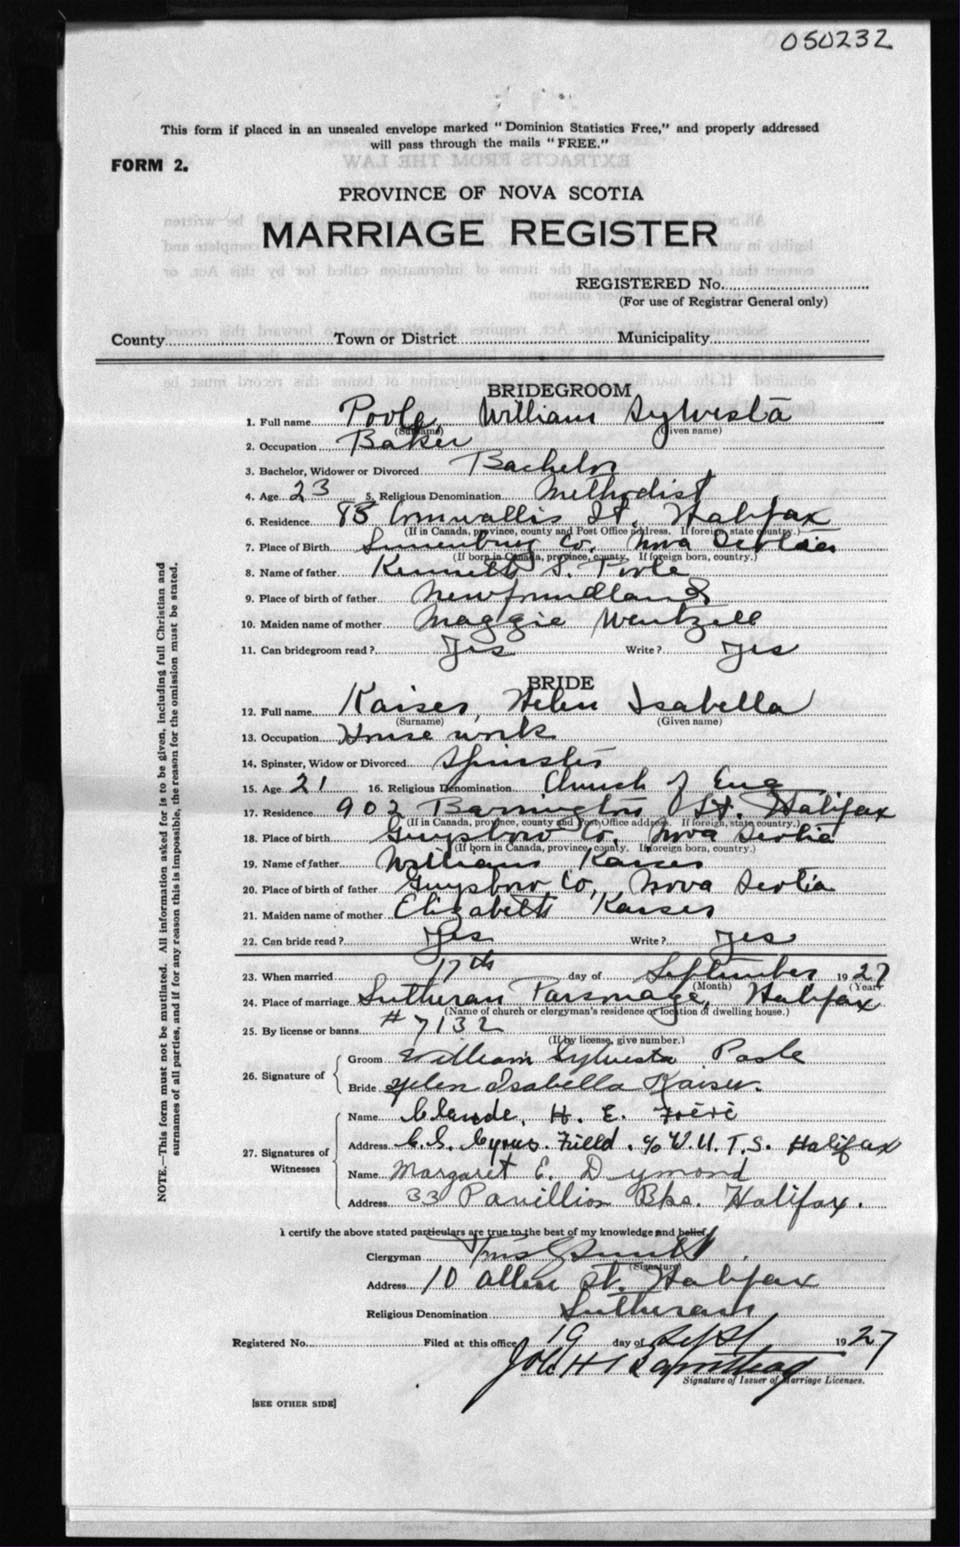 050232
This form if placed in an unsealed envelope marked "Dominion Statistics Free," and properly addressed
will pass through the mails "FREE."
FORM 2.
PROVINCE OF NOVA SCOTIA
MARRIAGE REGISTER
REGISTERED No.
(For use of Registrar General only)
County Town or District Municipality
BRIDEGROOM
1. Full name Poole, William Sylvesta
(Surname) (Given name)
2. Occupation Baker
3. Bachelor, Widower or Divorced Bachelor
4. Age 23 5. Religious Denomination Methodist
6. Residence Cornwallis St. Halifax
(If in Canada, province, county and Post Office address. If foreign, state country.)
7. Place of Birth Lunenburg Co. Nova Scotia
(If born in Canada, province, county. If foreign born, country.)
8. Name of father Kenneth S. Poole
9. Place of birth of father Newfoundland
10. Maiden name of mother Maggie Wentzell
11. Can bridegroom read? Yes Write? Yes
BRIDE
12. Full name Kaiser, Helen Isabella
(Surname) (Given name)
13. Occupation House work
14. Spinster, Widow or Divorced Spinster
15. Age 21 16. Religious Denomination Church of Eng
17. Residence 902 Barrington St. Halifax
(If in Canada, province, county and Post Office address. If foreign, state country.)
18. Place of birth Guysboro Co, Nova Scotia
(If born in Canada, province, county. If foreign born, country.)
19. Name of father William Kaiser
20. Place of birth of father Guysboro Co, Nova Scotia
21. Maiden name of mother Elizabeth Kaiser
22. Can bride read? Yes Write? Yes
23. When married 17th day of September 1927
(Month) (Year)
24. Place of marriage Lutheran Parsonage, Halifax
(Name of church or clergyman's residence or location of dwelling house.)
25. By license or banns #7132
(If by license, give number.)
26. Signature of
Groom William Sylvesta Poole
Bride Helen Isabella Kaiser.
27. Signatures of Witnesses
Name Claude. H. E.
Address C.S. Cyrus. Field. c/o W.U.T.S. Halifax
Name Margaret E. Dymond
Address 33 Pavillion Bks. Halifax.
I certify the above stated particulars are true to the best of my knowledge and belief.
Clergyman
(Signature)
Address 10 Allen St. Halifax
Religious Denomination Lutheran
Registered No. Filed at this office 19 day of Sept 1927
Signature of Issuer of Marriage Licenses.
[SEE OTHER SIDE]
NOTE.—This form must not be mutilated. All information asked for is to be given, including full Christian and
surnames of all parties, and if for any reason this is impossible, the reason for the omission must be stated.